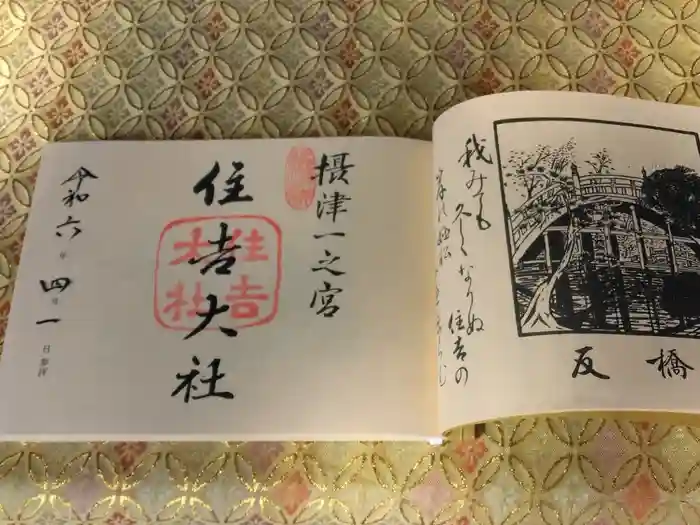 反橋
我みても
久しくなりぬ
住吉の
岸の姫松
摂津一之宮
住吉大社
住吉大社
令和六年四月一日参拝